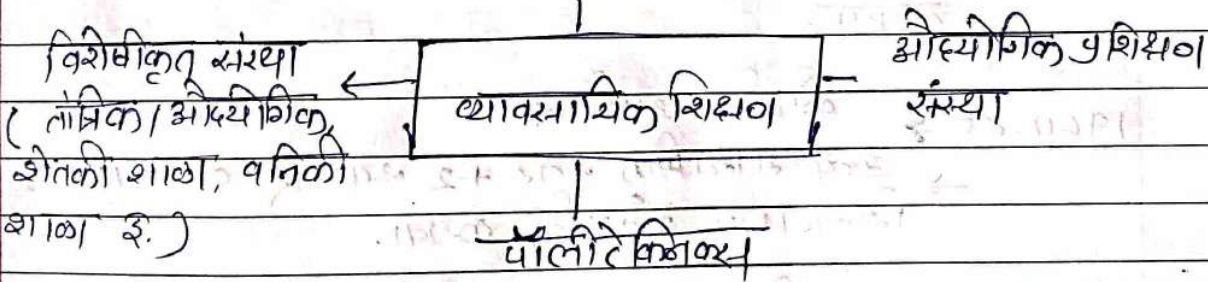 विशेषीकृत संस्था
( तांत्रिक / औद्योगिक,
शेतकी शाळा, वनिकी
शाळा इ. )
व्यावसायिक शिक्षण
औद्योगिक प्रशिक्षण
संस्था
पॉलीटेक्निक्स